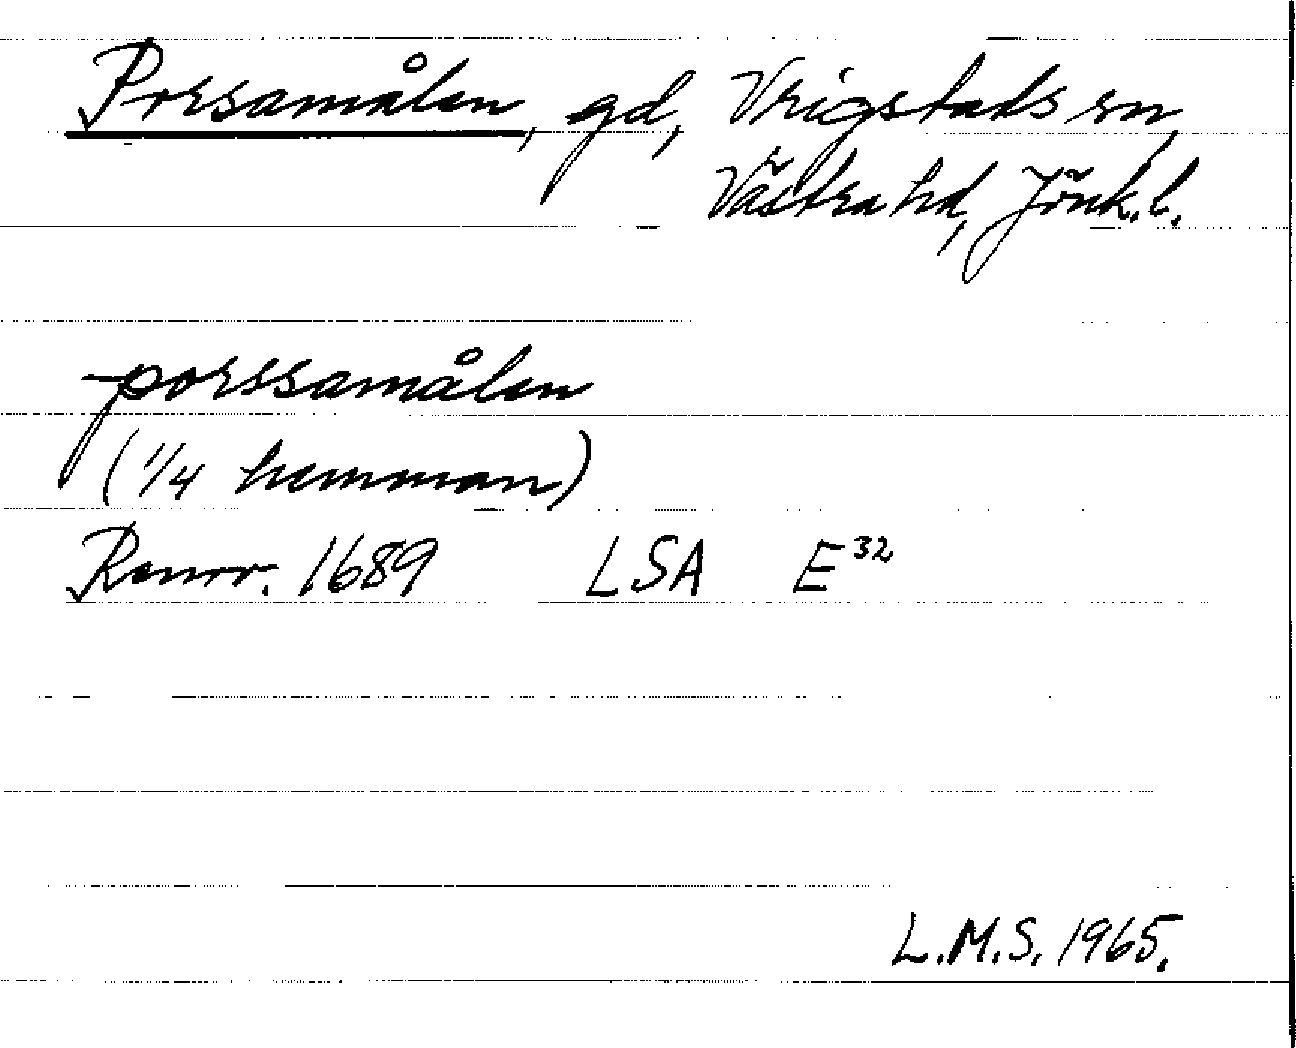 Porsamålen, gd, Vrigstads sn,
Västra hd, Jönk. l.
porssamålen
(1/4 hemman)
Renov. 1689 LSA E³²
L.M.S. 1965.